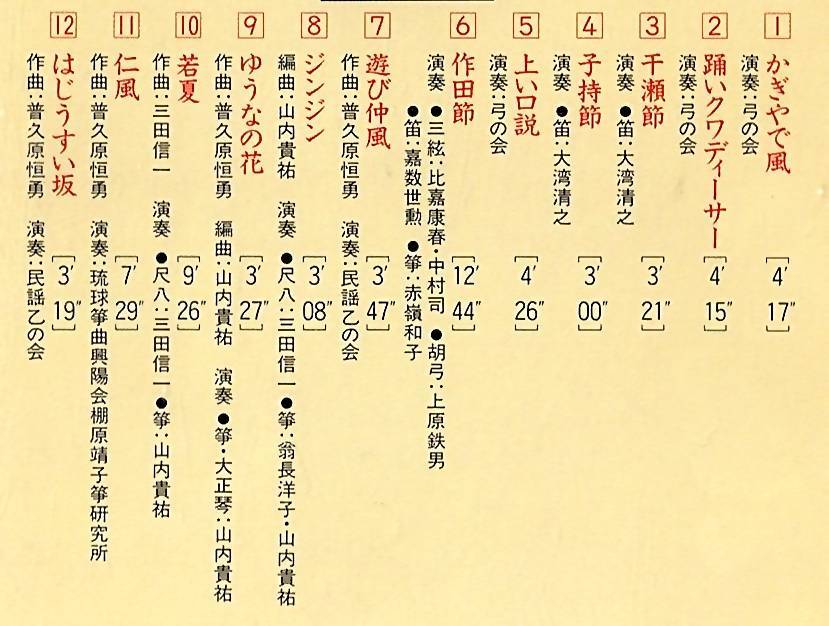 1
かぎやで風
[4′17″]
演奏：弓の会
2
踊いクワディーサー
[4′15″]
演奏：弓の会
3
干瀬節
[3′21″]
演奏　●笛：大湾清之
4
子持節
[3′00″]
演奏　●笛：大湾清之
5
上い口説
[4′26″]
演奏：弓の会
6
作田節
[12′44″]
演奏　●三絃：比嘉康春・中村司　●胡弓：上原鉄男
●笛：嘉数世勲　●箏：赤嶺和子
7
遊び仲風
[3′47″]
作曲：普久原恒勇　演奏：民謡乙の会
8
ジンジン
[3′08″]
編曲：山内貴祐　演奏　●尺八：三田信一　●箏：翁長洋子・山内貴祐
9
ゆうなの花
[3′27″]
作曲：普久原恒勇　編曲：山内貴祐　演奏　●箏・大正琴：山内貴祐
10
若夏
[9′26″]
作曲：三田信一　演奏　●尺八：三田信一　●箏：山内貴祐
11
仁風
[7′29″]
作曲：普久原恒勇　演奏：琉球箏曲興陽会棚原靖子箏研究所
12
はじうすい坂
[3′19″]
作曲：普久原恒勇　演奏：民謡乙の会